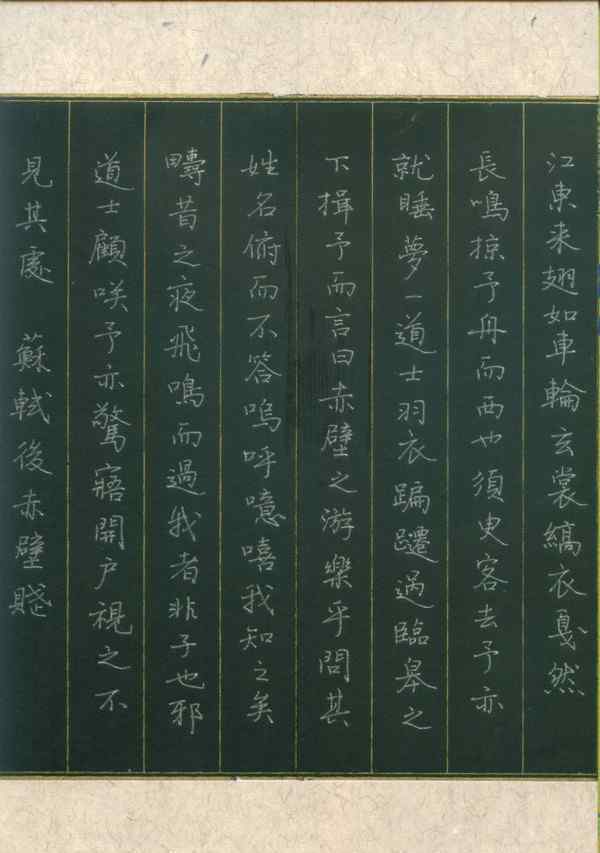 江東来翅如車輪玄裳縞衣戛然
長鳴掠予舟而西也須臾客去予亦
就睡夢一道士羽衣蹁躚過臨皋之
下揖予而言曰赤壁之游樂乎問其
姓名俯而不答嗚呼噫嘻我知之矣
疇昔之夜飛鳴而過我者非子也邪
道士顧咲予亦驚寤開户視之不
見其處　蘇軾後赤壁賤